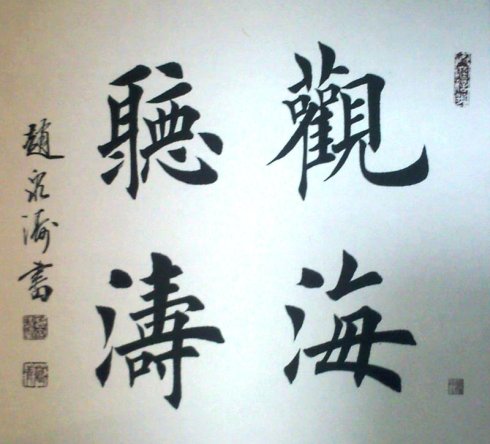 觀海
聽濤
趙永濤書